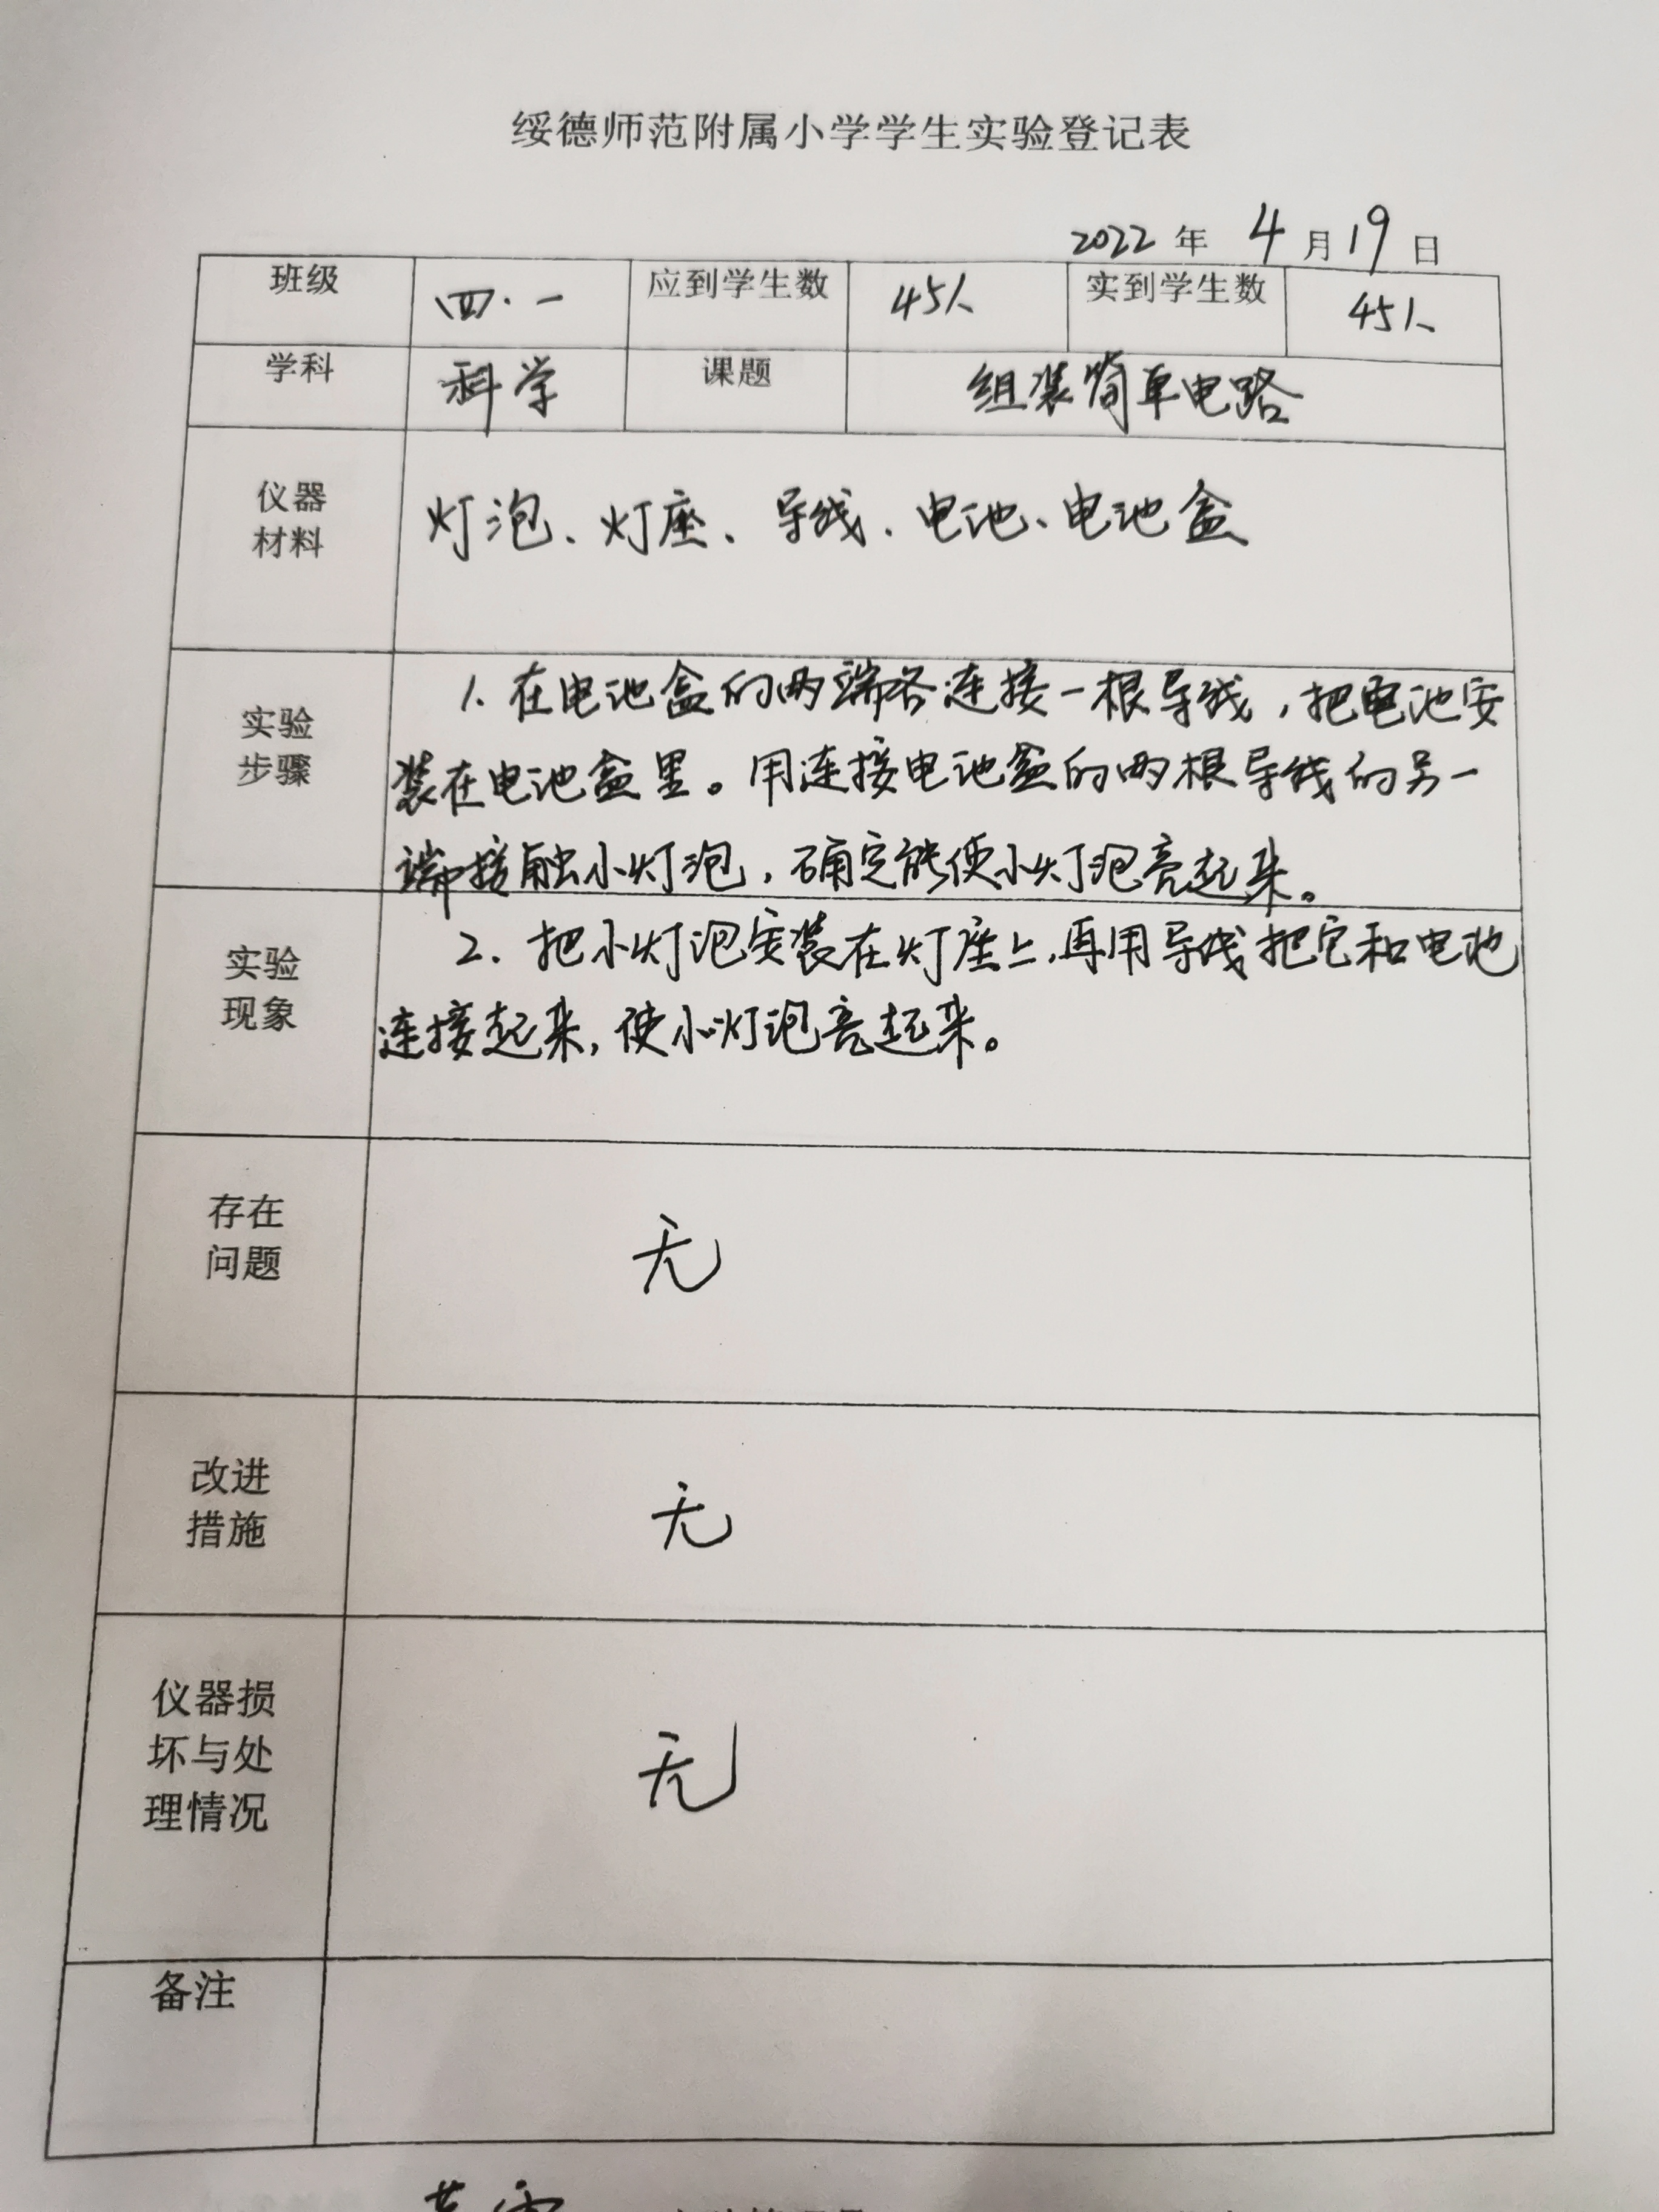 绥德师范附属小学学生实验登记表
2022 年 4 月 19 日
班级 四.一 应到学生数 45人 实到学生数 45人
学科 科学 课题 组装简单电路
仪器
材料
灯泡、灯座、导线、电池、电池盒
实验
步骤
1. 在电池盒的两端各连接一根导线，把电池安
装在电池盒里。用连接电池盒的两根导线的另一
端接触小灯泡，确定能使小灯泡亮起来。
实验
现象
2. 把小灯泡安装在灯座上，再用导线把它和电池
连接起来，使小灯泡亮起来。
存在
问题
无
改进
措施
无
仪器损
坏与处
理情况
无
备注